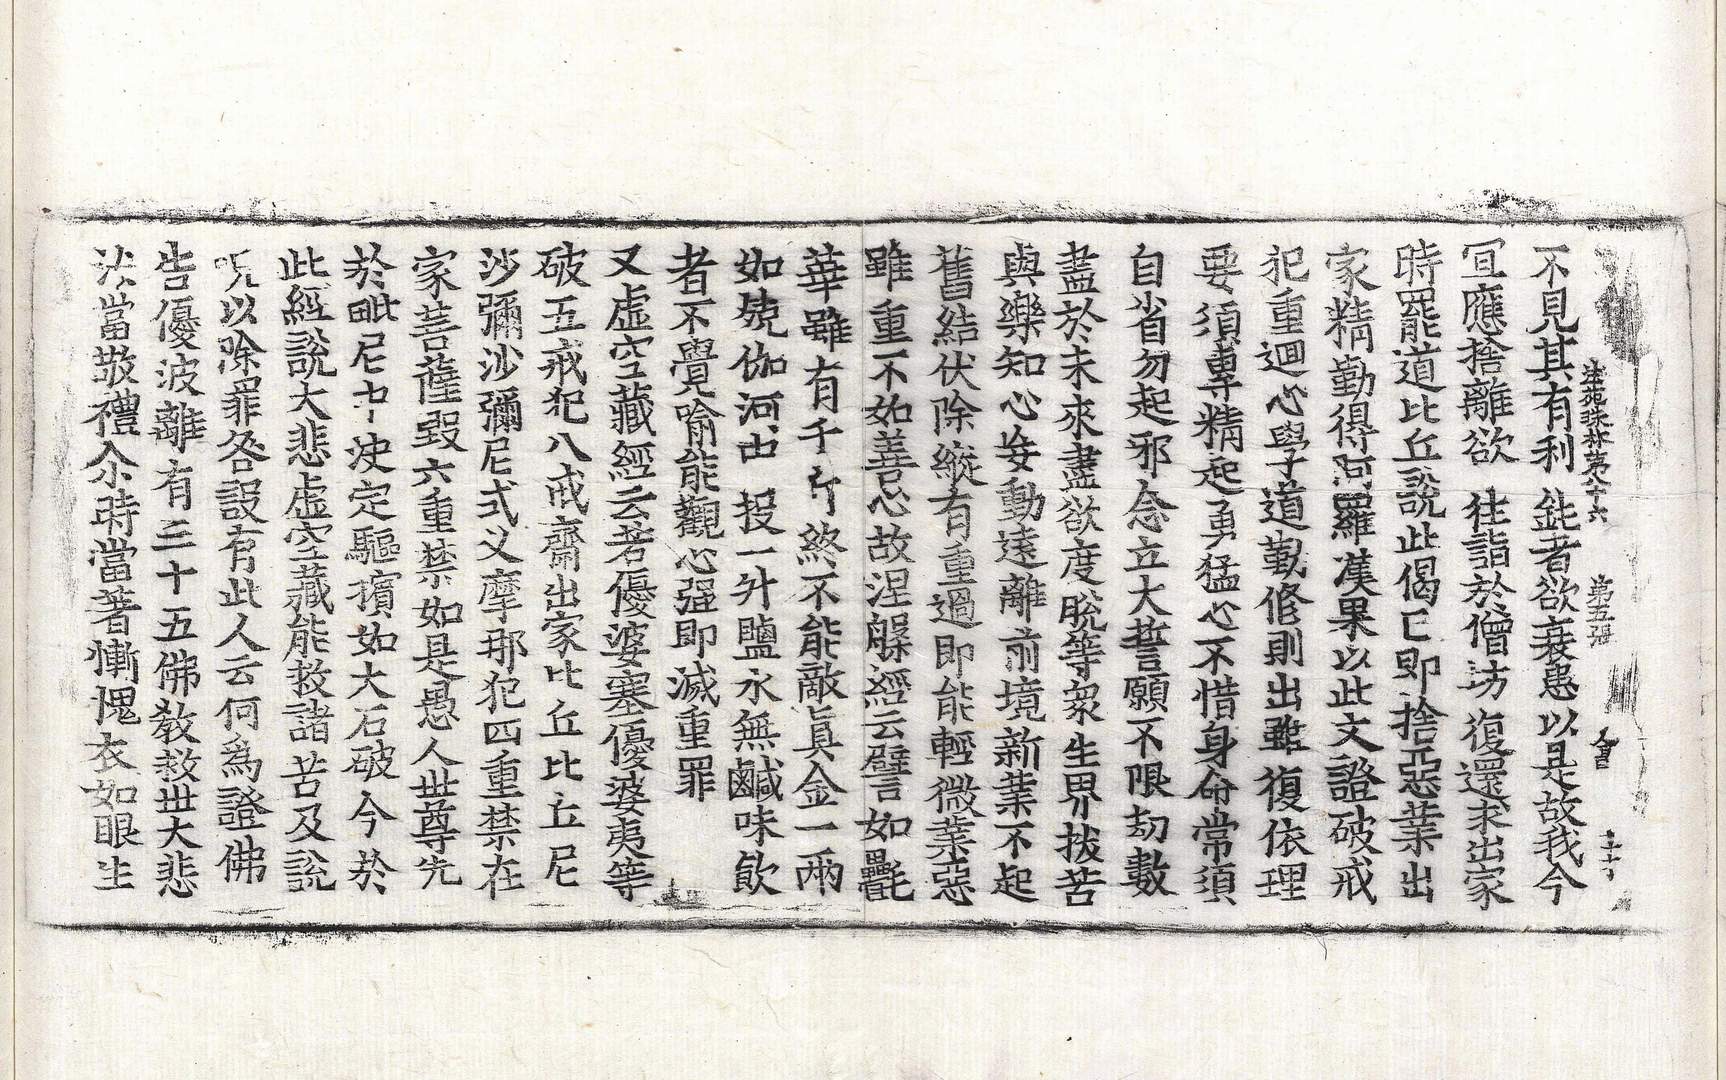 法苑珠林第八十六 第五張
不見其有利 鈍者欲衰患以是故我今
冝應捨離欲 往詣於僧坊復還求出家
時罷道比丘說此偈已即捨惡業出
家精勤得阿羅漢果以此文證破戒
犯重迴心學道勤修則出雖復依理
要須專精起勇猛心不惜身命常須
自省勿起邪念立大誓願不限劫數
盡於未來盡欲度脫等衆生界拔苦
與樂知心妄動遠離前境新業不起
舊結伏除縱有重過即能輕微業惡
雖重不如善心故涅槃經云譬如㲲
華雖有千斤終不能敵真金一兩
如㷛伽河中投一升鹽水無鹹味飲
者不覺喻能觀心强即滅重罪
又虛空藏經云若優婆塞優婆夷等
破五戒犯八戒齋出家比丘比丘尼
沙彌沙彌尼式叉摩那犯四重禁在
家菩薩毀六重禁如是愚人世尊先
於毗尼中決定驅擯如大石破今於
此經說大悲虛空藏能救諸苦及說
呪以除罪咎設有此人云何爲證佛
告優波離有三十五佛教救世大悲
汝當敬禮尒時當著慚愧衣如眼生